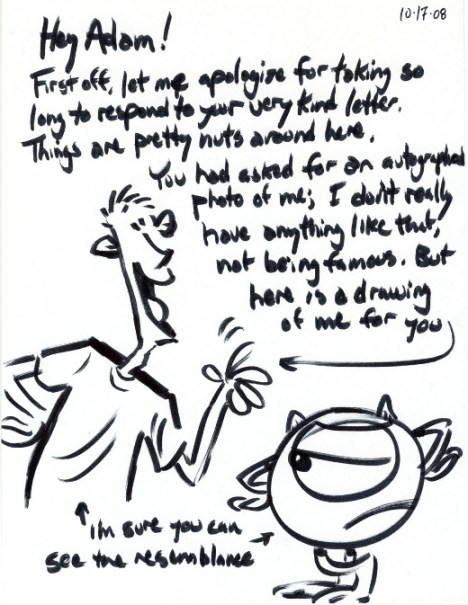 10·17·08
Hey Adam!
First off, let me apologize for taking so
long to respond to your very kind letter.
Things are pretty nuts around here.
You had asked for an autographed
photo of me; I don't really
have anything like that,
not being famous. But
here is a drawing
of me for you
i'm sure you can
see the resemblance